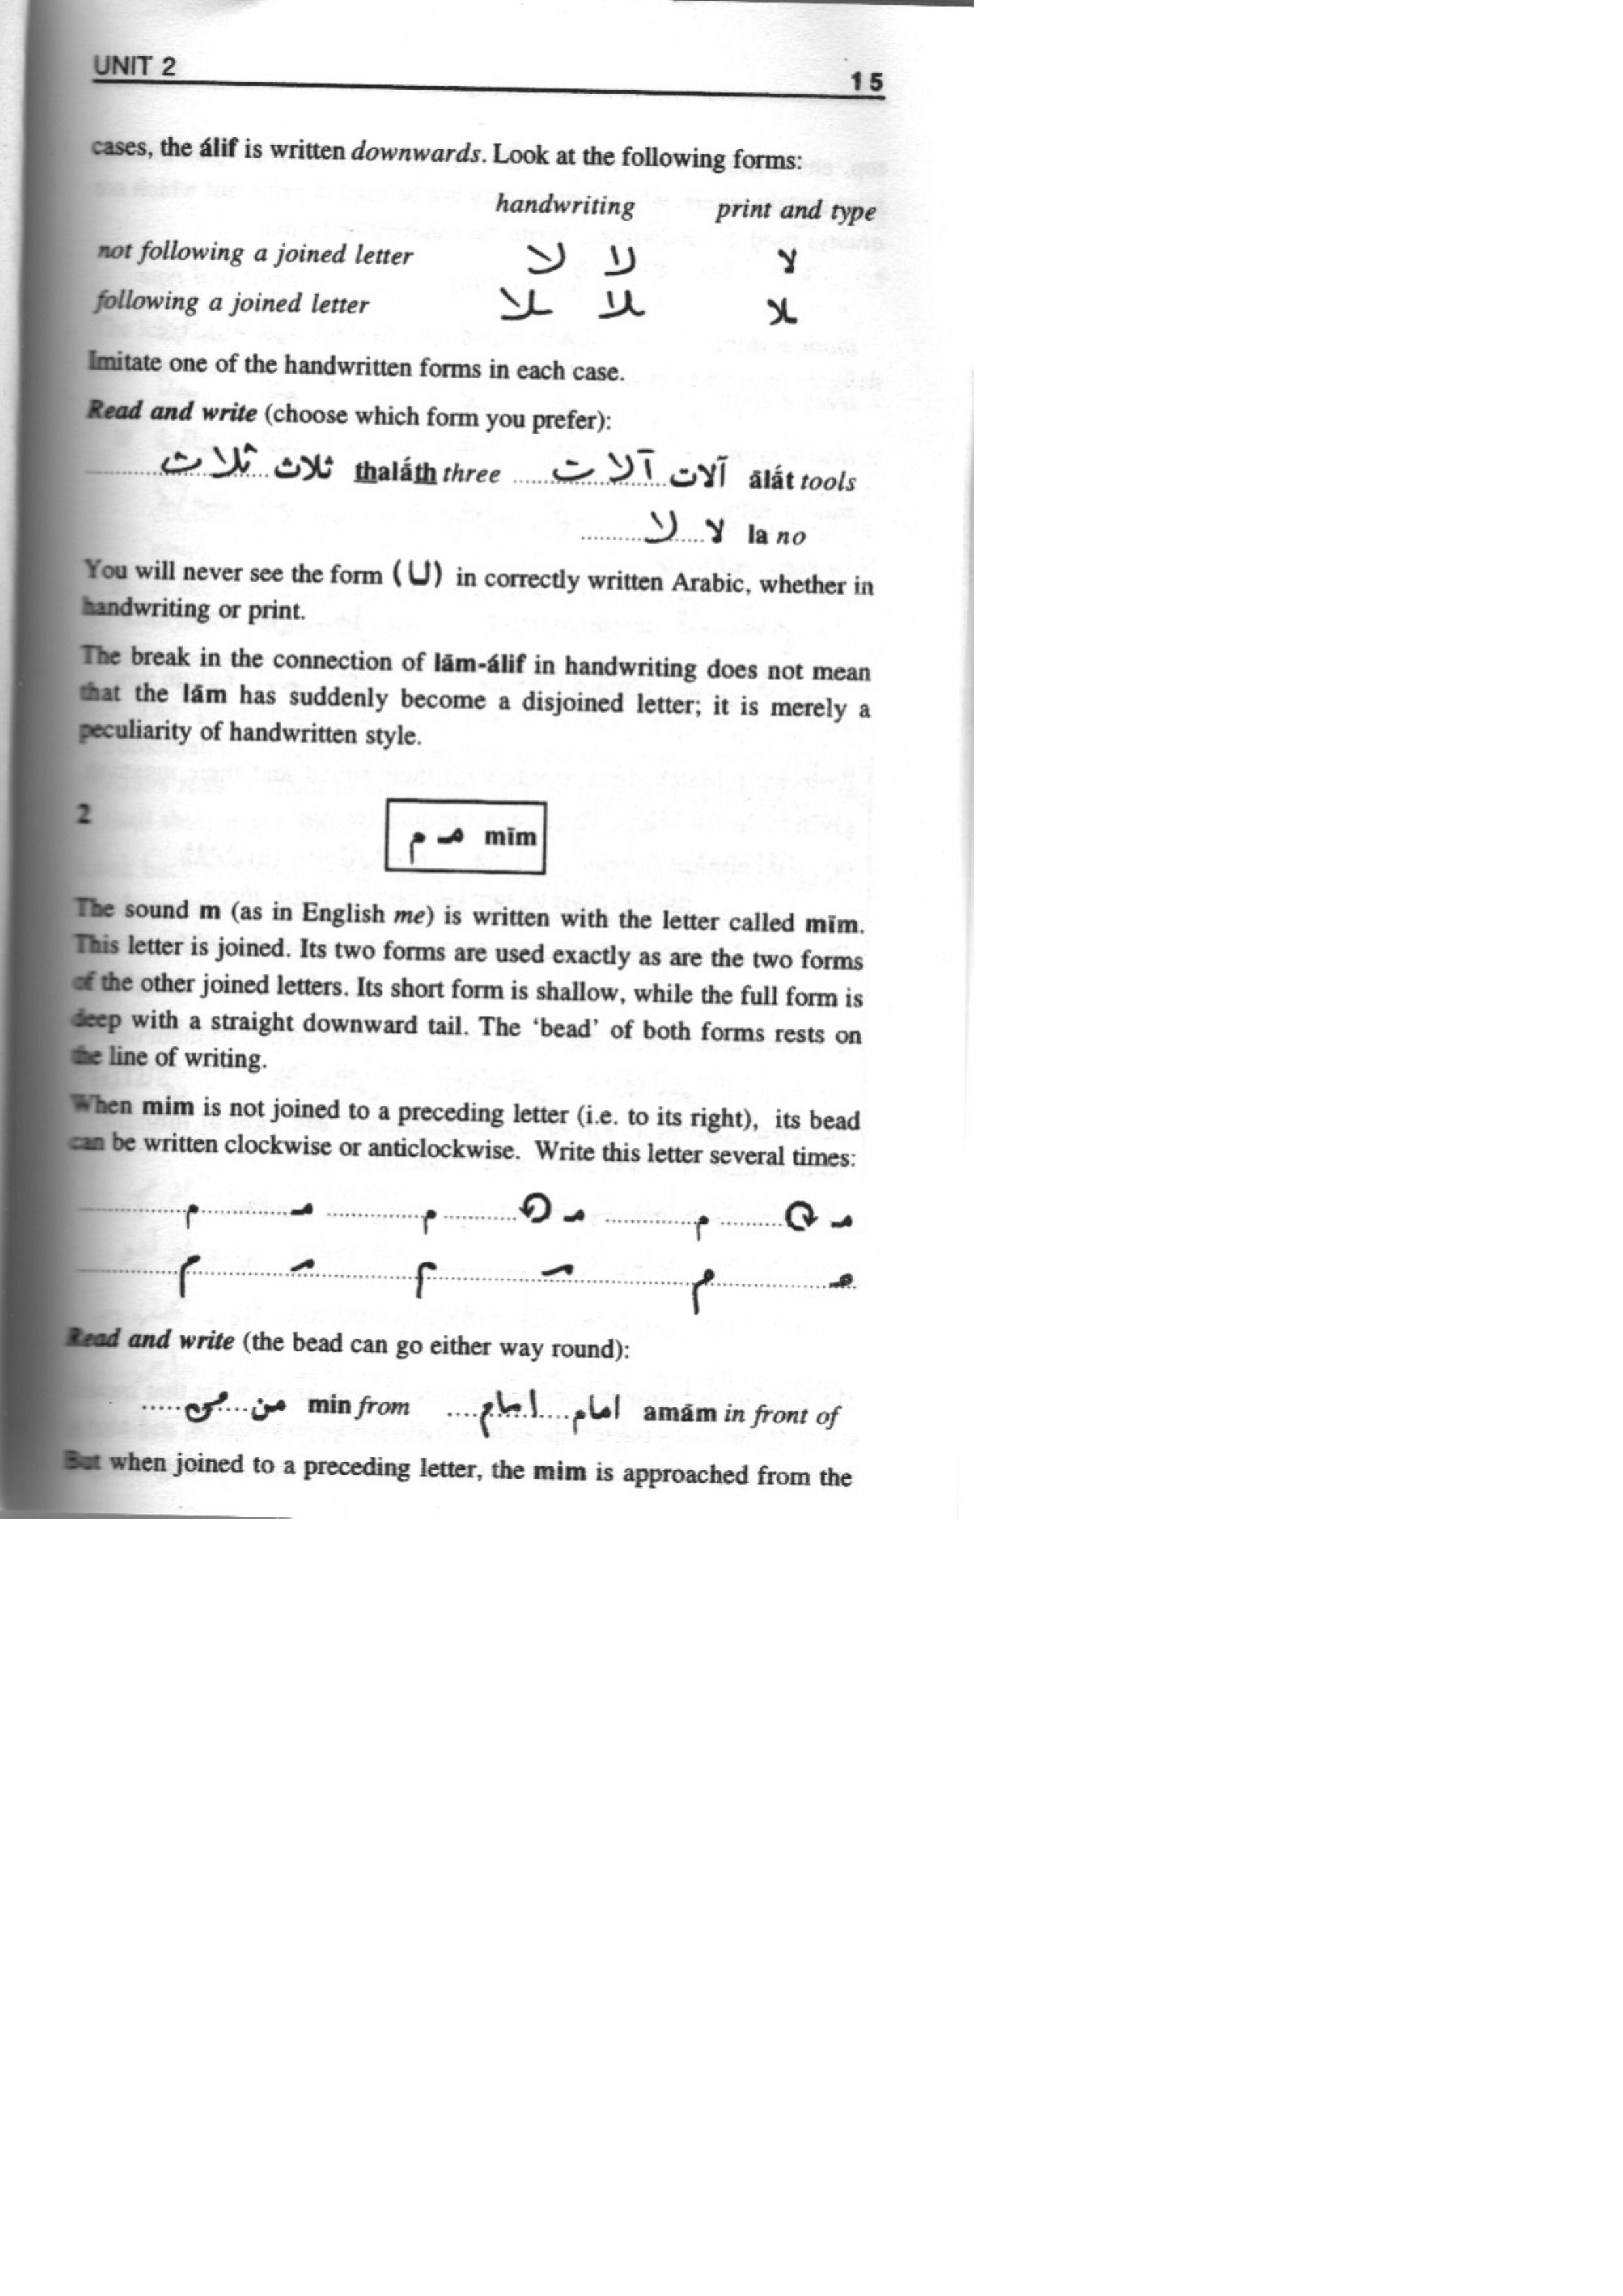 UNIT 2 15
cases, the álif is written downwards. Look at the following forms:
handwriting print and type
not following a joined letter لا لا لا
following a joined letter ـلا ـلا ـلا
Imitate one of the handwritten forms in each case.
Read and write (choose which form you prefer):
ālā́t tools آلات آلات .................... thalā́th three ثلاث ثلاث ....................
la no لا لا ....................
You will never see the form (لـا) in correctly written Arabic, whether in
handwriting or print.
The break in the connection of lām-álif in handwriting does not mean
that the lām has suddenly become a disjoined letter; it is merely a
peculiarity of handwritten style.
2
مـ م mīm
The sound m (as in English me) is written with the letter called mīm.
This letter is joined. Its two forms are used exactly as are the two forms
of the other joined letters. Its short form is shallow, while the full form is
deep with a straight downward tail. The ‘bead’ of both forms rests on
the line of writing.
When mim is not joined to a preceding letter (i.e. to its right), its bead
can be written clockwise or anticlockwise. Write this letter several times:
مـ ↻ .......... م .......... مـ ↺ .......... م .......... مـ .......... م ..........
مـ .......... م .......... مـ .......... م .......... مـ .......... م ..........
Read and write (the bead can go either way round):
amām in front of امام امام .... min from من من .....
But when joined to a preceding letter, the mim is approached from the